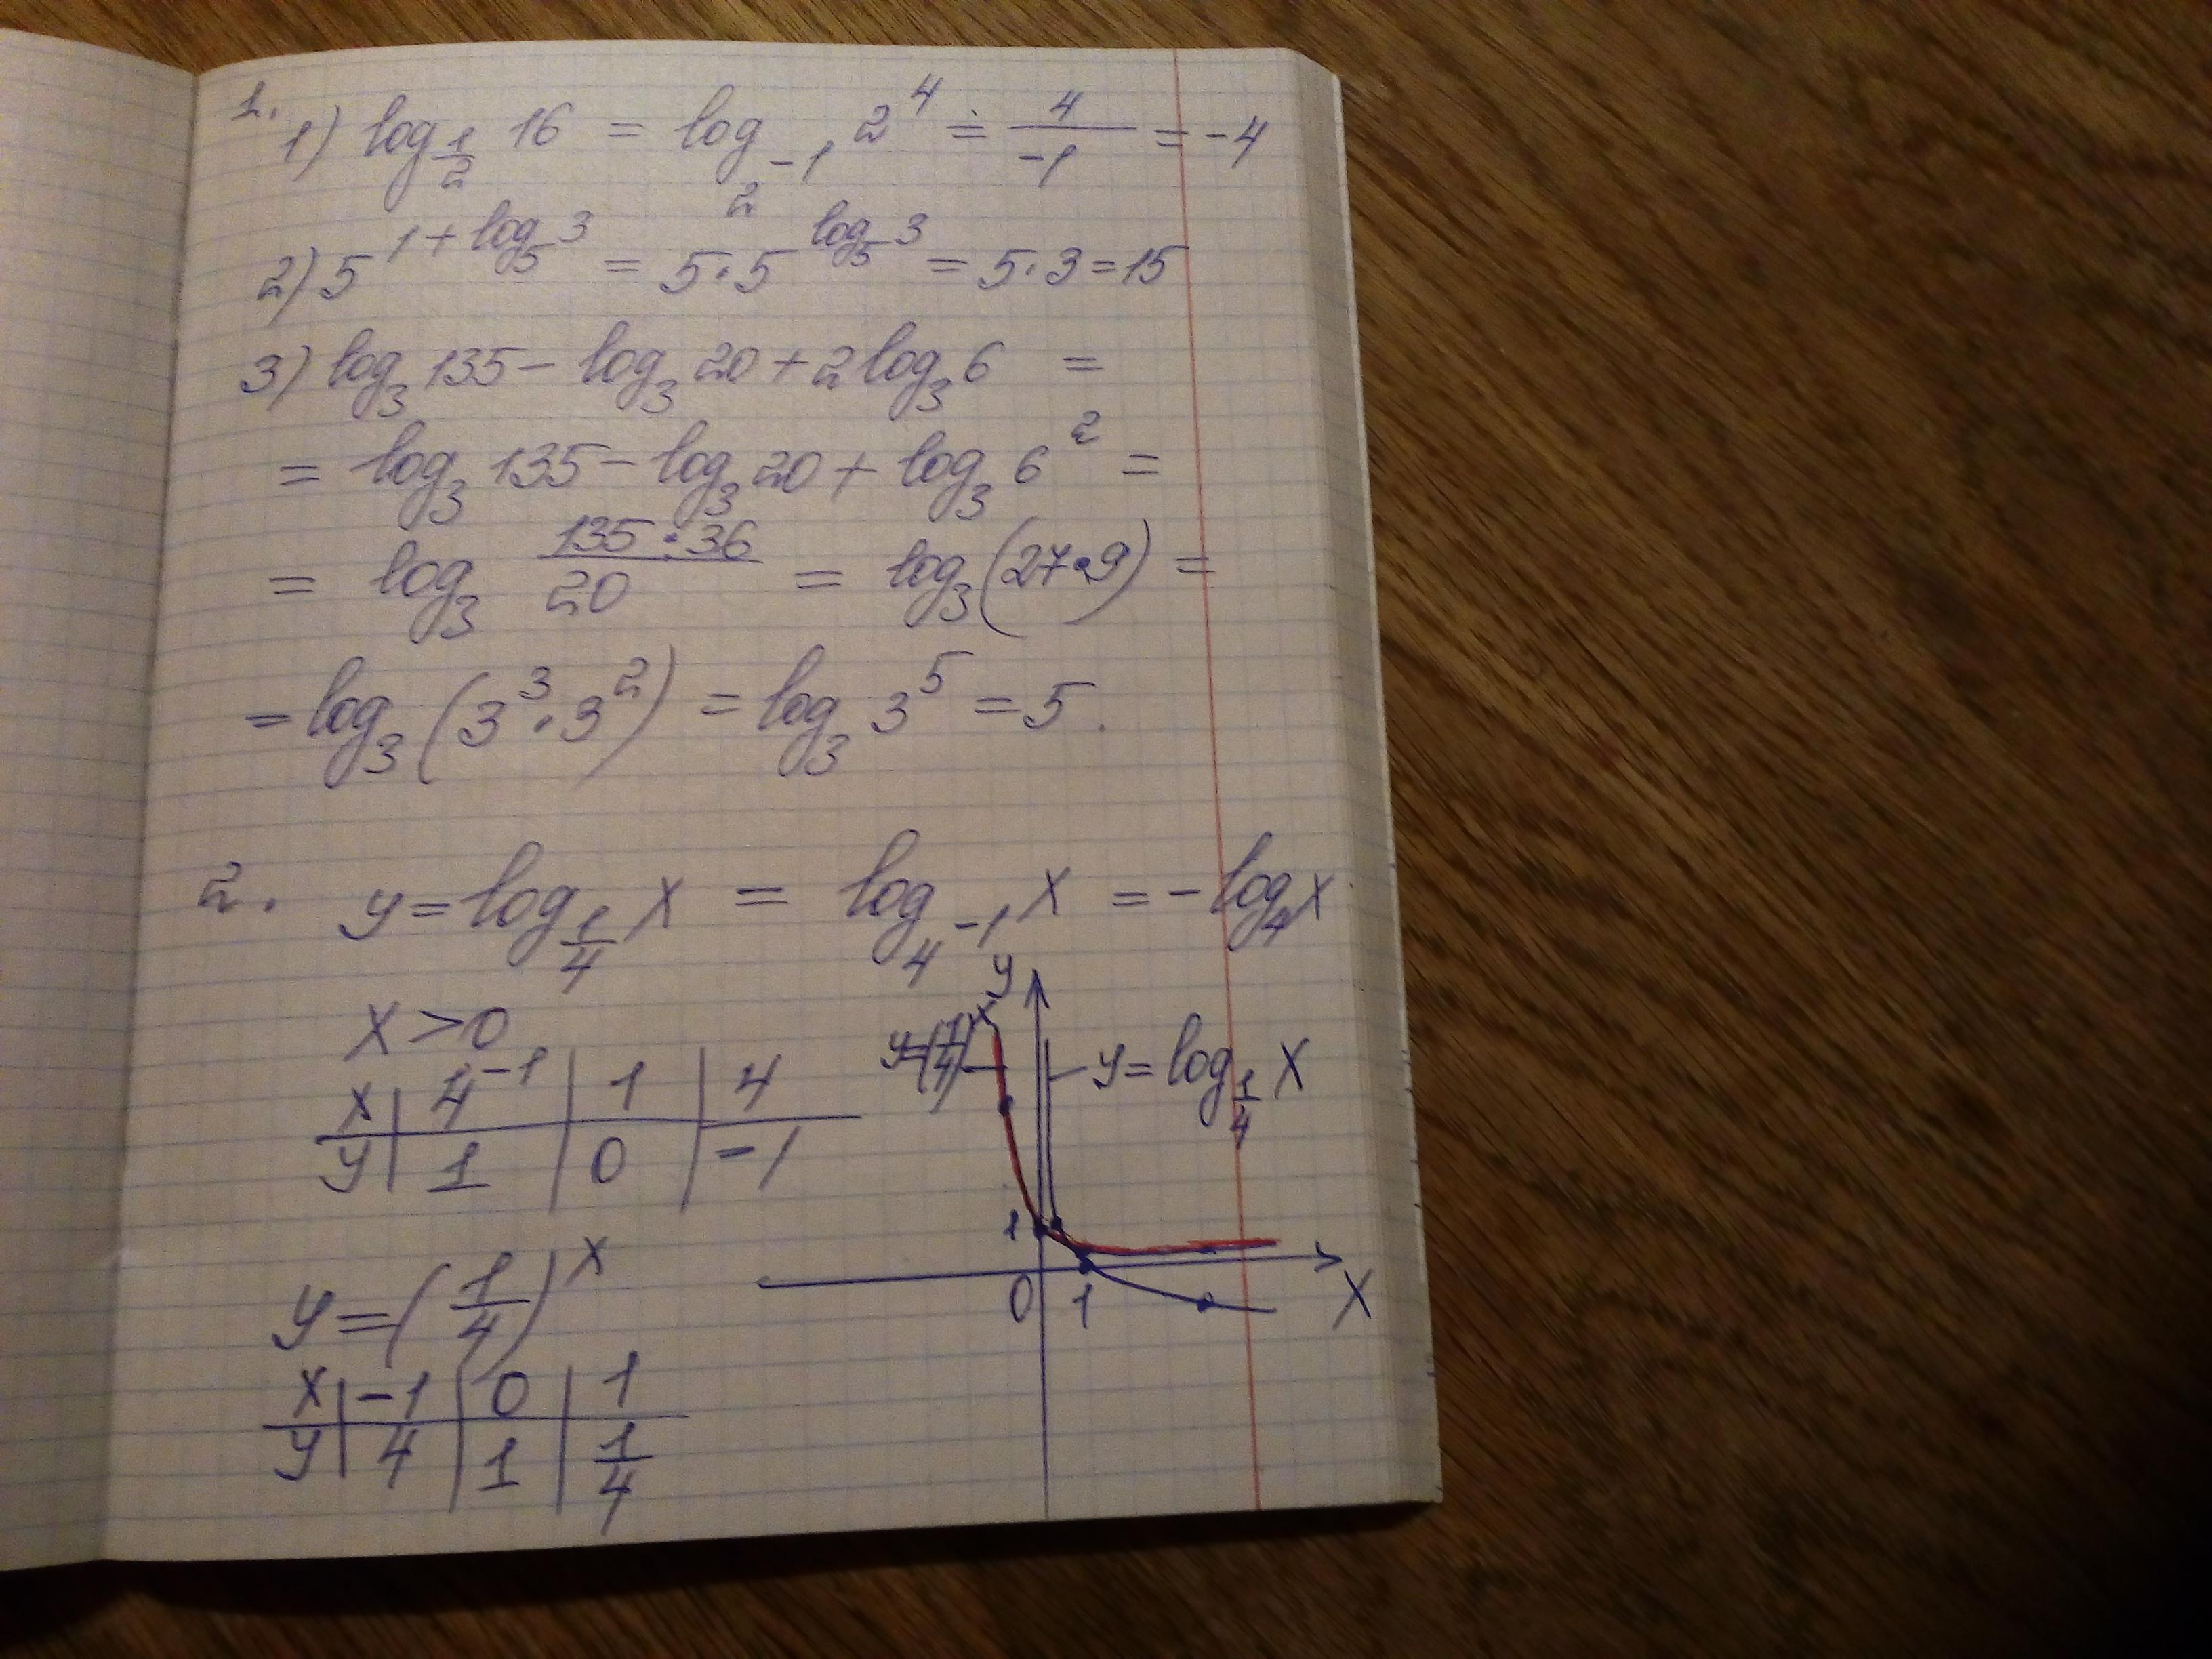 1.
1) log_{1/2} 16 = log_{2^{-1}} 2^4 = 4/-1 = -4
2) 5^{1+log_5 3} = 5·5^{log_5 3} = 5·3=15
3) log_3 135 - log_3 20 + 2log_3 6 =
= log_3 135 - log_3 20 + log_3 6^2 =
= log_3 (135·36)/20 = log_3 (27·9) =
= log_3 (3^3·3^2) = log_3 3^5 = 5.
2. y = log_{1/4} x = log_{4^{-1}} x = -log_4 x
x > 0
x | 4^{-1} | 1 | 4
y | 1 | 0 | -1
y = (1/4)^x
x | -1 | 0 | 1
y | 4 | 1 | 1/4
y
y=(1/4)^x
y = log_{1/4} x
1
0 1 x